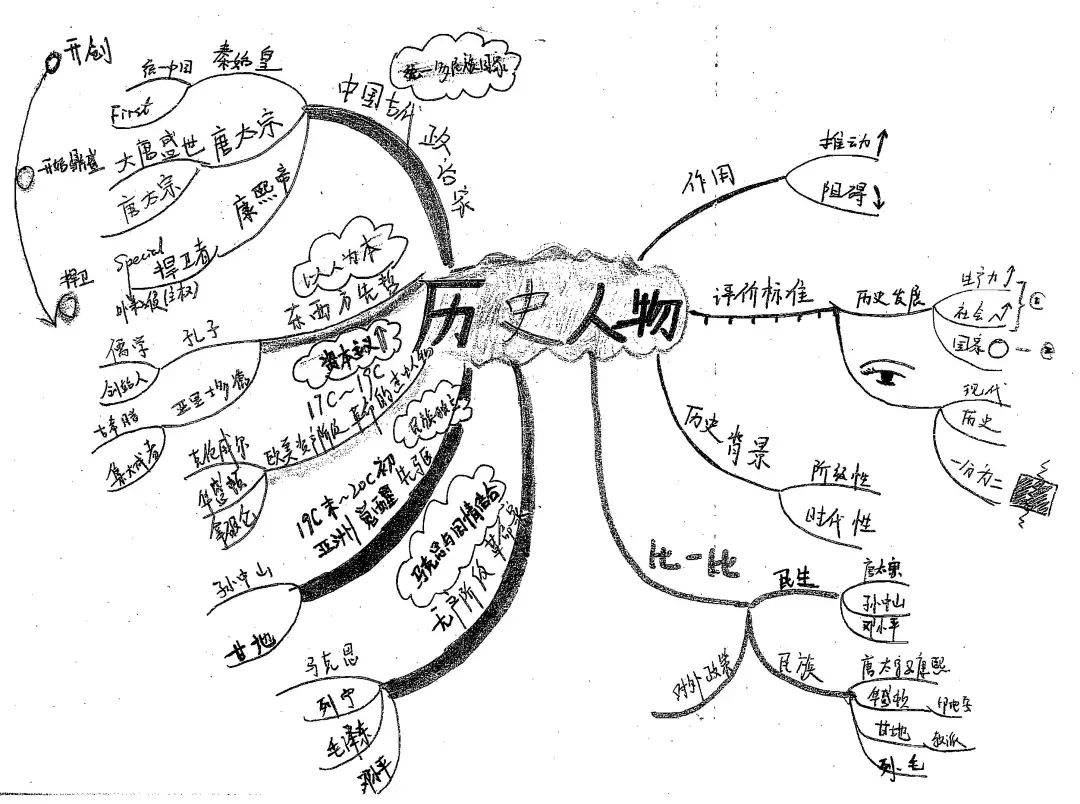 历史人物
中国古代政治家
统一多民族国家
秦始皇
统一中国
First
唐太宗
大唐盛世
唐太宗
康熙帝
Special
捍卫者
开创
捍卫
东西方先哲
以人为本
孔子
儒学
创始人
亚里士多德
古希腊
集大成者
17C~19C
欧美资产阶级革命的杰出人物
资本主义↑
克伦威尔
华盛顿
拿破仑
19C末~20C初
亚洲觉醒先驱
孙中山
甘地
无产阶级革命家
马克思
列宁
毛泽东
邓小平
作用
推动↑
阻碍↓
评价标准
历史发展
生产力↑
社会↑
①
国家
②
现代
历史
一分为二
历史背景
阶级性
时代性
比一比
民生
唐太宗
孙中山
邓小平
民族
唐太宗康熙
华盛顿
甘地
列、毛
对外政策